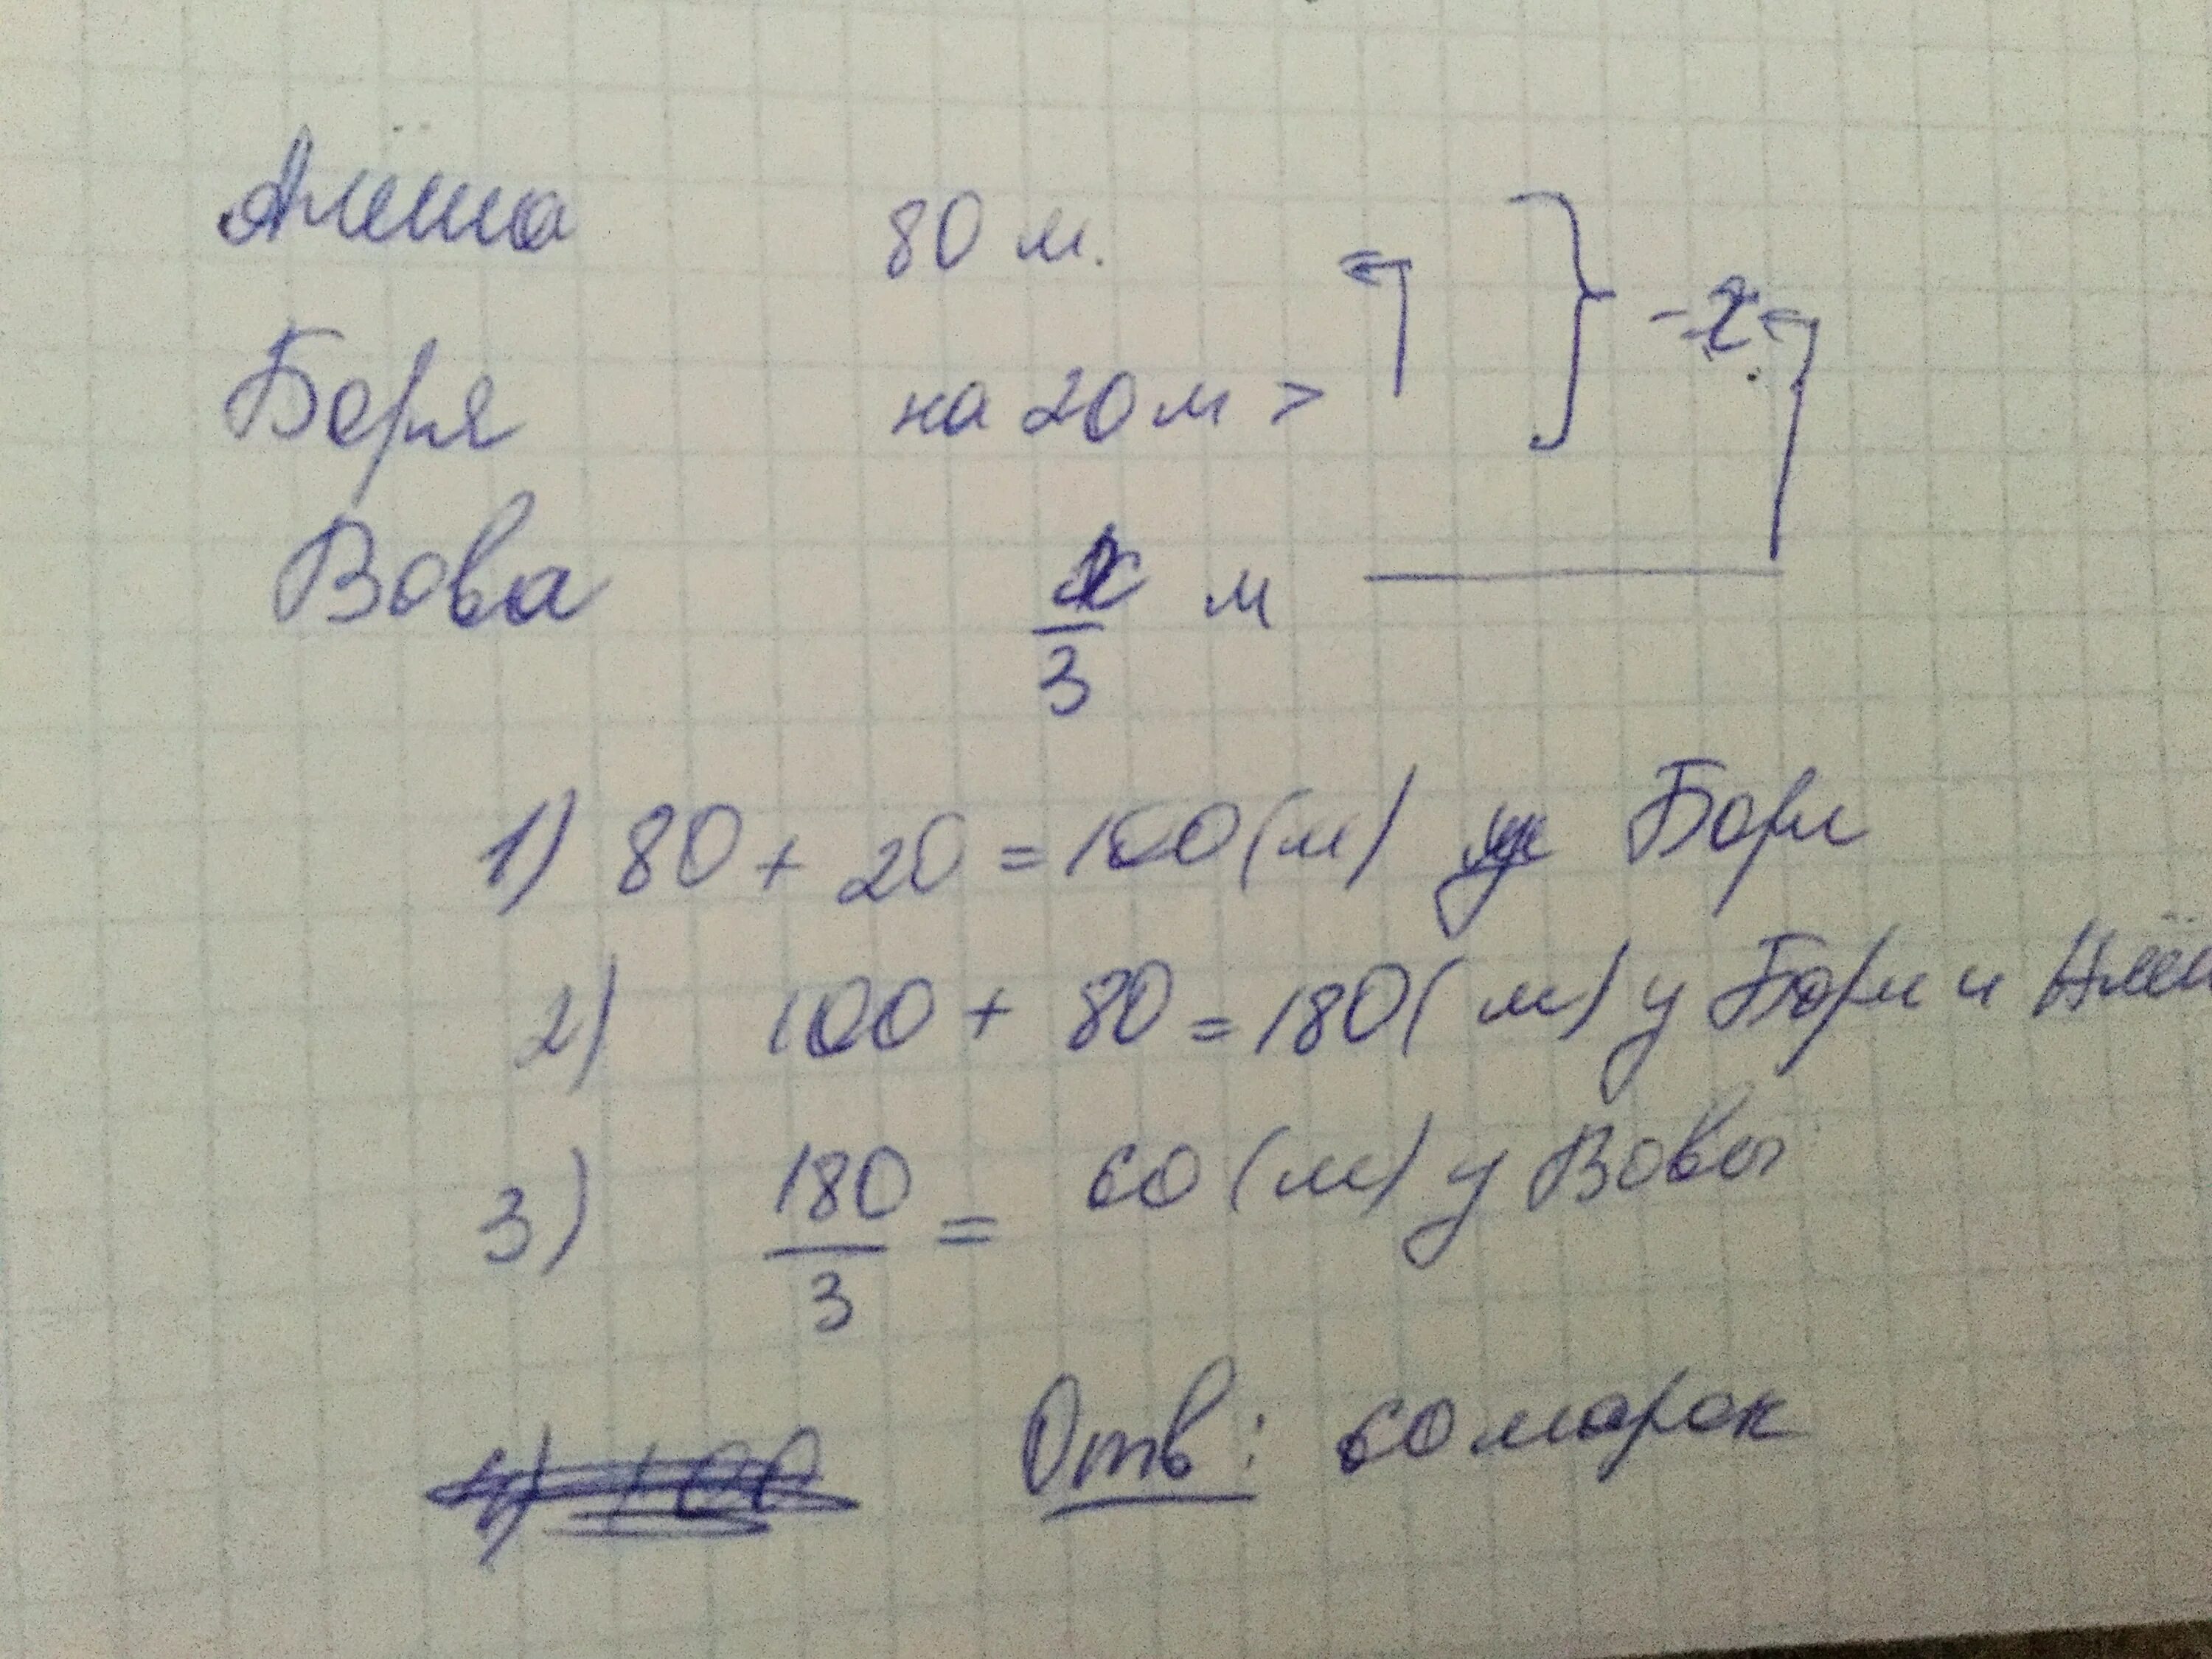 Алёша 80 м. } - x
Боря на 20 м >
Вова x/3 м
1) 80 + 20 = 100 (м) у Бори
2) 100 + 80 = 180 (м) у Бори и Алёш
3) 180/3 = 60 (м) у Вовы
4) 100
Отв: 60 марок